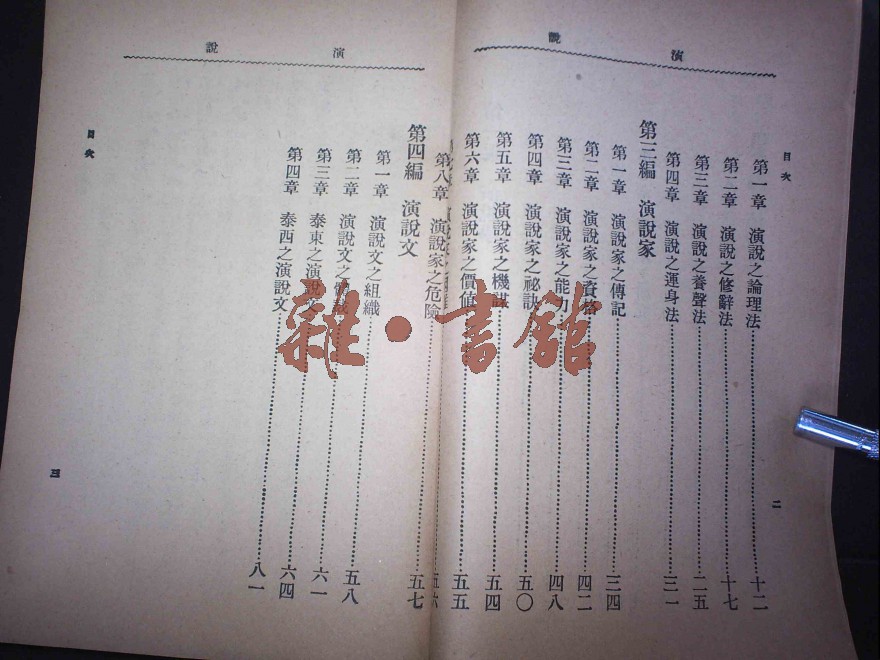 演說
目次
第一章 演說之論理法……十二
第二章 演說之修辭法……十七
第三章 演說之養聲法……二五
第四章 演說之運身法……三一
第三編 演說家
第一章 演說家之傳記……三四
第二章 演說家之資格……四二
第三章 演說家之能力……四八
第四章 演說家之祕訣……五〇
第五章 演說家之機謀……五四
第六章 演說家之價值……五五
二
演說
……五六
第八章 演說家之危險……五七
第四編 演說文
第一章 演說文之組織……五八
第二章 演說文之……六一
第三章 泰東之演說文……六四
第四章 泰西之演說文……八一
目次
三
雜·書館